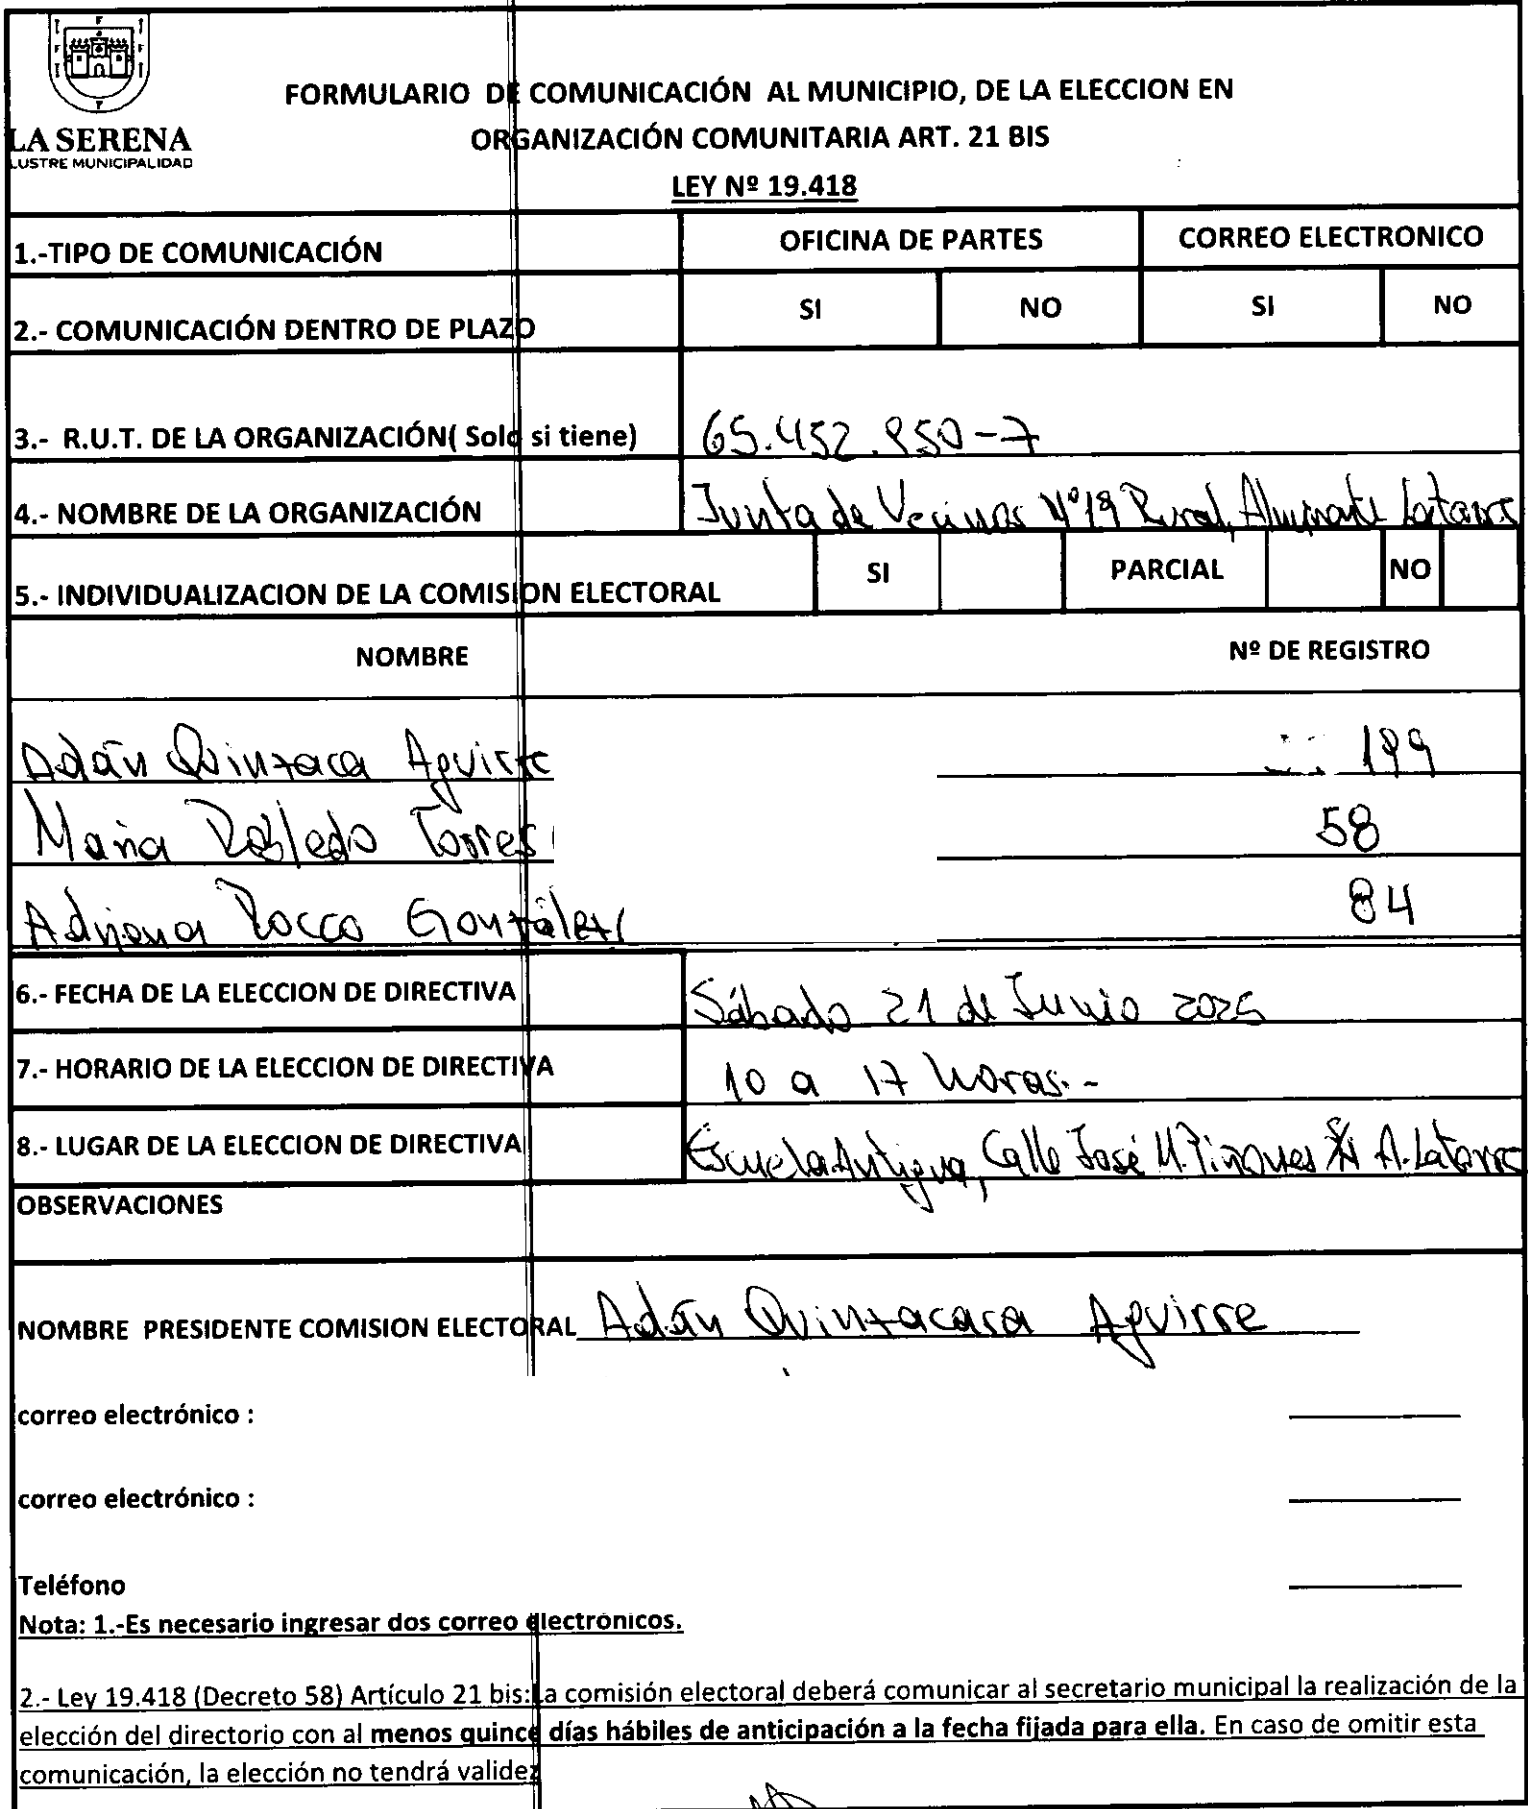 LA SERENA
LUSTRE MUNICIPALIDAD
FORMULARIO DE COMUNICACIÓN AL MUNICIPIO, DE LA ELECCION EN
ORGANIZACIÓN COMUNITARIA ART. 21 BIS
LEY Nº 19.418
1.-TIPO DE COMUNICACIÓN OFICINA DE PARTES CORREO ELECTRONICO
2.- COMUNICACIÓN DENTRO DE PLAZO SI NO SI NO
3.- R.U.T. DE LA ORGANIZACIÓN( Solo si tiene) 65.452.850-7
4.- NOMBRE DE LA ORGANIZACIÓN Junta de Vecinos Nº19 Rural, Almirante Latorre
5.- INDIVIDUALIZACION DE LA COMISION ELECTORAL SI PARCIAL NO
NOMBRE Nº DE REGISTRO
Adán Quintaca Aguirre 199
María Robledo Torres 58
Adriana Rocco González 84
6.- FECHA DE LA ELECCION DE DIRECTIVA Sábado 21 de Junio 2025
7.- HORARIO DE LA ELECCION DE DIRECTIVA 10 a 17 horas.-
8.- LUGAR DE LA ELECCION DE DIRECTIVA Escuela Antigua, Calle José M. Piñones S/N A. Latorre
OBSERVACIONES
NOMBRE PRESIDENTE COMISION ELECTORAL Adán Quintacara Aguirre
correo electrónico :
correo electrónico :
Teléfono
Nota: 1.-Es necesario ingresar dos correo electronicos.
2.- Ley 19.418 (Decreto 58) Artículo 21 bis:La comisión electoral deberá comunicar al secretario municipal la realización de la
elección del directorio con al menos quince días hábiles de anticipación a la fecha fijada para ella. En caso de omitir esta
comunicación, la elección no tendrá validez